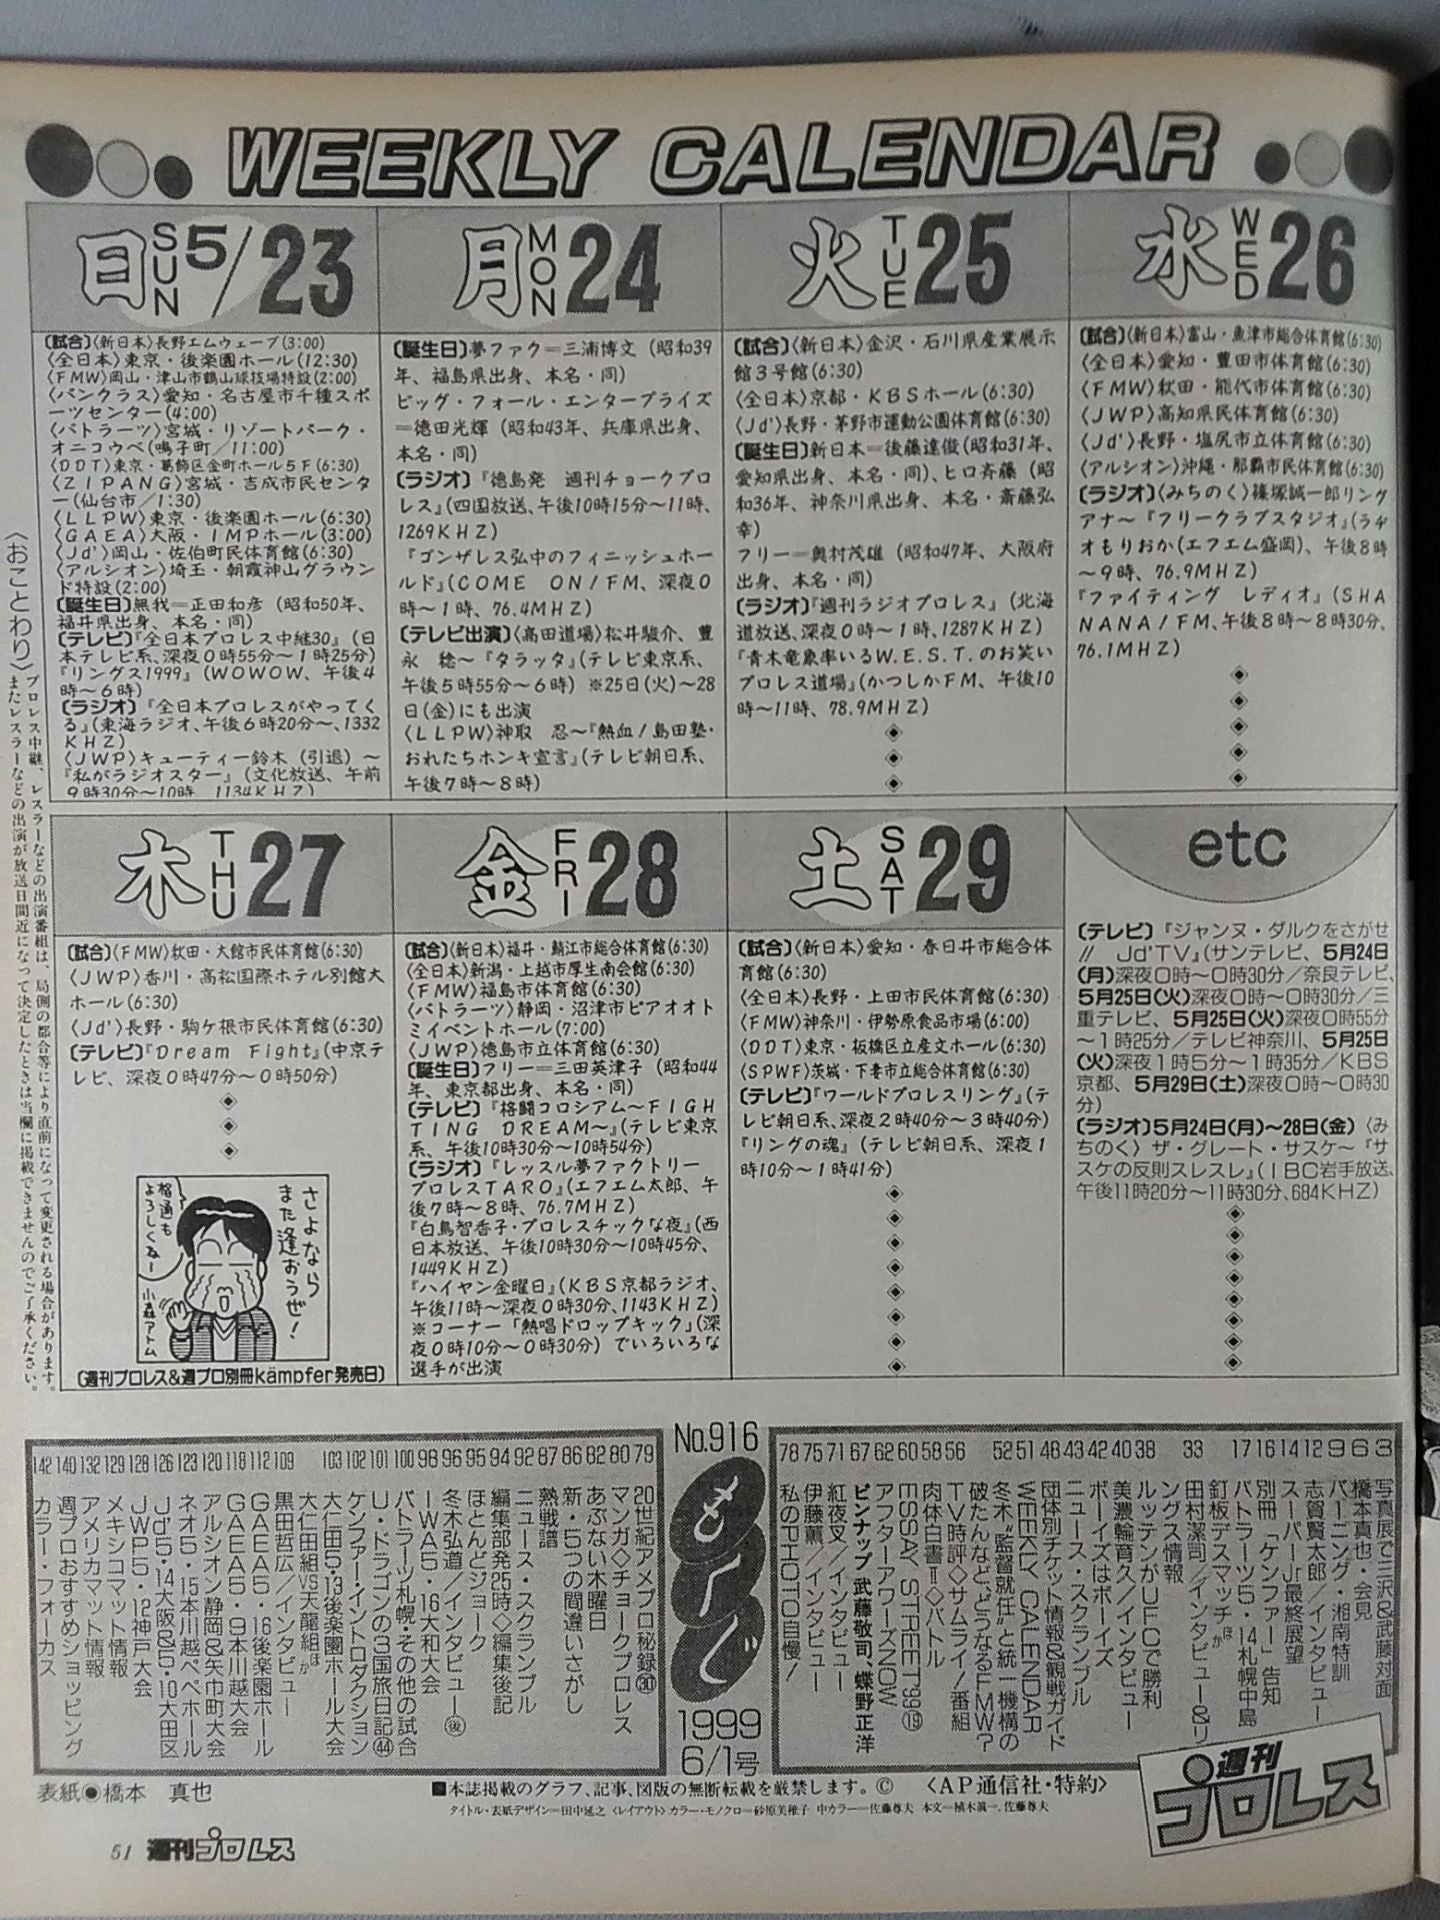 WEEKLY CALENDAR
日 SUN 5/23
〔試合〕〈新日本〉長野エムウェーブ(3:00)
〈全日本〉東京・後楽園ホール(12:30)
〈FMW〉岡山・津山市鶴山球技場特設(2:00)
〈パンクラス〉愛知・名古屋市千種スポ
ーツセンター(4:00)
〈バトラーツ〉宮城・リゾートパーク・
オニコウベ(鳴子町/11:00)
〈DDT〉東京・葛飾区金町ホール5F(6:30)
〈ZIPANG〉宮城・吉成市民センタ
ー(仙台市/1:30)
〈LLPW〉東京・後楽園ホール(6:30)
〈GAEA〉大阪・IMPホール(3:00)
〈Jd'〉岡山・佐伯町民体育館(6:30)
〈アルシオン〉埼玉・朝霞神山グラウン
ド特設(2:00)
〔誕生日〕無我=正田和彦(昭和50年、
福井県出身、本名・同)
〔テレビ〕『全日本プロレス中継30』(日
本テレビ系、深夜0時55分〜1時25分)
『リングス1999』(WOWOW、午後4
時〜6時)
〔ラジオ〕『全日本プロレスがやってく
る』(東海ラジオ、午後6時20分〜、1332
KHZ)
〈JWP〉キューティー鈴木(引退)〜
『私がラジオスター』(文化放送、午前
9時30分〜10時、1134KHZ)
月 MON 24
〔誕生日〕夢ファク=三浦博文(昭和39
年、福島県出身、本名・同)
ビッグ・フォール・エンタープライズ
=徳田光輝(昭和43年、兵庫県出身、
本名・同)
〔ラジオ〕『徳島発 週刊チョークプロ
レス』(四国放送、午後10時15分〜11時、
1269KHZ)
『ゴンザレス弘中のフィニッシュホー
ルド』(COME ON!FM、深夜0
時〜1時、76.4MHZ)
〔テレビ出演〕〈高田道場〉松井駿介、豊
永 稔〜『タラッタ』(テレビ東京系、
午後5時55分〜6時) ※25日(火)〜28
日(金)にも出演
〈LLPW〉神取 忍〜『熱血!島田塾・
おれたちホンキ宣言』(テレビ朝日系、
午後7時〜8時)
火 TUE 25
〔試合〕〈新日本〉金沢・石川県産業展示
館3号館(6:30)
〈全日本〉京都・KBSホール(6:30)
〈Jd'〉長野・茅野市運動公園体育館(6:30)
〔誕生日〕新日本=後藤達俊(昭和31年、
愛知県出身、本名・同)、ヒロ斉藤(昭
和36年、神奈川県出身、本名・斎藤弘
幸)
フリー=奥村茂雄(昭和47年、大阪府
出身、本名・同)
〔ラジオ〕『週刊ラジオプロレス』(北海
道放送、深夜0時〜1時、1287KHZ)
『青木竜象率いるW.E.S.T.のお笑い
プロレス道場』(かつしかFM、午後10
時〜11時、78.9MHZ)
水 WED 26
〔試合〕〈新日本〉富山・魚津市総合体育館(6:30)
〈全日本〉愛知・豊田市体育館(6:30)
〈FMW〉秋田・能代市体育館(6:30)
〈JWP〉高知県民体育館(6:30)
〈Jd'〉長野・塩尻市立体育館(6:30)
〈アルシオン〉沖縄・那覇市民体育館(6:30)
〔ラジオ〕〈みちのく〉篠塚誠一郎リング
アナ〜『フリークラブスタジオ』(ラヂ
オもりおか(エフエム盛岡)、午後8時
〜9時、76.9MHZ)
『ファイティング レディオ』(SHA
NANA!FM、午後8時〜8時30分、
76.1MHZ)
木 THU 27
〔試合〕〈FMW〉秋田・大館市民体育館(6:30)
〈JWP〉香川・高松国際ホテル別館大
ホール(6:30)
〈Jd'〉長野・駒ケ根市民体育館(6:30)
〔テレビ〕『Dream Fight』(中京テ
レビ、深夜0時47分〜0時50分)
さよなら
また逢おうぜ!
格通も
よろしくねー
小森アトム
〔週刊プロレス&週プロ別冊kämpfer発売日〕
金 FRI 28
〔試合〕〈新日本〉福井・鯖江市総合体育館(6:30)
〈全日本〉新潟・上越市厚生南会館(6:30)
〈FMW〉福島市体育館(6:30)
〈バトラーツ〉静岡・沼津市ビアオオト
ミイベントホール(7:00)
〈JWP〉徳島市立体育館(6:30)
〔誕生日〕フリー=三田英津子(昭和44
年、東京都出身、本名・同)
〔テレビ〕『格闘コロシアム〜FIGH
TING DREAM〜』(テレビ東京
系、午後10時30分〜10時54分)
〔ラジオ〕『レッスル夢ファクトリー
プロレスTARO』(エフエム太郎、午
後7時〜8時、76.7MHZ)
『白鳥智香子・プロレスチックな夜』(西
日本放送、午後10時30分〜10時45分、
1449KHZ)
『ハイヤン金曜日』(KBS京都ラジオ、
午後11時〜深夜0時30分、1143KHZ)
※コーナー「熱唱ドロップキック」(深
夜0時10分〜0時30分)でいろいろな
選手が出演
土 SAT 29
〔試合〕〈新日本〉愛知・春日井市総合体
育館(6:30)
〈全日本〉長野・上田市民体育館(6:30)
〈FMW〉神奈川・伊勢原食品市場(6:00)
〈DDT〉東京・板橋区立産文ホール(6:30)
〈SPWF〉茨城・下妻市立総合体育館(6:30)
〔テレビ〕『ワールドプロレスリング』(テ
レビ朝日系、深夜2時40分〜3時40分)
『リングの魂』(テレビ朝日系、深夜1
時10分〜1時41分)
etc
〔テレビ〕『ジャンヌ・ダルクをさがせ
!! Jd'TV』(サンテレビ、5月24日
(月)深夜0時〜0時30分/奈良テレビ、
5月25日(火)深夜0時〜0時30分/三
重テレビ、5月25日(火)深夜0時55分
〜1時25分/テレビ神奈川、5月25日
(火)深夜1時5分〜1時35分/KBS
京都、5月29日(土)深夜0時〜0時30
分)
〔ラジオ〕5月24日(月)〜28日(金)〈み
ちのく〉ザ・グレート・サスケ〜『サ
スケの反則スレスレ』(IBC岩手放送、
午後11時20分〜11時30分、684KHZ)
〈おことわり〉プロレス中継、レスラーなどの出演番組は、局側の都合等により直前になって変更される場合があります。
またレスラーなどの出演が放送日間近になって決定したときは当欄に掲載できませんのでご了承ください。
3 写真展で三沢&武藤対面
6 橋本真也・会見
9 バーニング・湘南特訓
12 志賀賢太郎/インタビュー
14 スーパーJr.最終展望
16 別冊「ケンファー」告知
17 バトラーツ5・14札幌中島
釘板デスマッチほか
33 田村潔司/インタビュー&リ
ングス情報
38 ルッテンがUFCで勝利
40 美濃輪育久/インタビュー
42 ボーイズはボーイズ
43 ニュース・スクランブル
48 団体別チケット情報&観戦ガイド
51 WEEKLY CALENDAR
52 冬木“監督就任”と統一機構の
破たんなど、どうなるFMW?
56 TV時評◇サムライ!番組
58 肉体白書Ⅱ◇バトル
60 ESSAY STREET'99⑲
62 アフターアワーズNOW
67 ピンナップ 武藤敬司、蝶野正洋
71 紅夜叉/インタビュー
75 伊藤薫/インタビュー
78 私のPHOTO自慢!
No.916
もくじ
1999
6/1号
79 20世紀アメプロ秘録㉚
80 マンガ◇チョークプロレス
82 あぶない木曜日
86 新・5つの間違いさがし
87 熱戦譜
92 ニュース・スクランブル
94 編集部発25時◇編集後記
95 ほとんどジョーク
96 冬木弘道/インタビュー㊦
98 IWA5・16大和大会
100 バトラーツ札幌・その他の試合
101 U・ドラゴンの3国旅日記㊹
102 ケンファー・イントロダクション
103 大仁田5・13後楽園ホール大会
大仁田組vs天龍組ほか
109 黒田哲広/インタビュー
112 GAEA5・16後楽園ホール
118 GAEA5・9本川越大会
120 アルシオン静岡&矢巾町大会
123 ネオ5・15本川越ペペホール
126 Jd'5・14大阪&5・10大田区
128 JWP5・12神戸大会
129 メキシコマット情報
132 アメリカマット情報
140 週プロおすすめショッピング
142 カラー・フォーカス
表紙●橋本 真也
■本誌掲載のグラフ、記事、図版の無断転載を厳禁します。© 〈AP通信社・特約〉
タイトル・表紙デザイン=田中延之 〈レイアウト〉カラー・モノクロ=砂原美稚子 中カラー=佐藤尊夫 本文=植木眞一、佐藤尊夫
週刊プロレス
51 週刊プロレス